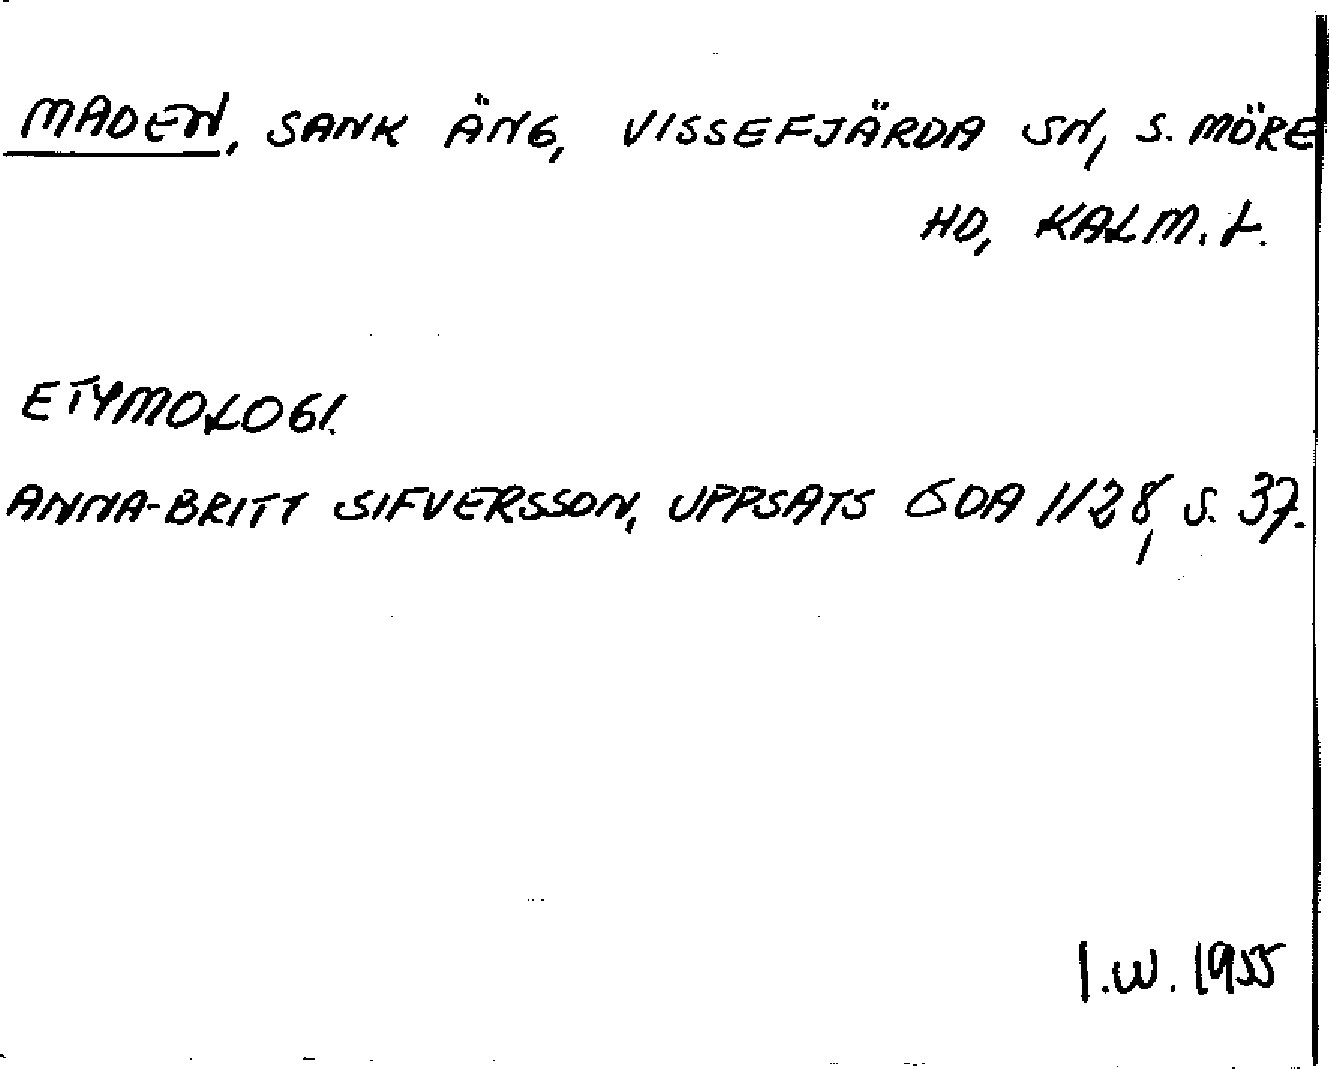 MADEN, SANK ÄNG, VISSEFJÄRDA SN, S. MÖRE
HD, KALM. L.
ETYMOLOGI.
ANNA-BRITT SIFVERSSON, UPPSATS ODA 1128, S. 37.
I.W. 1955